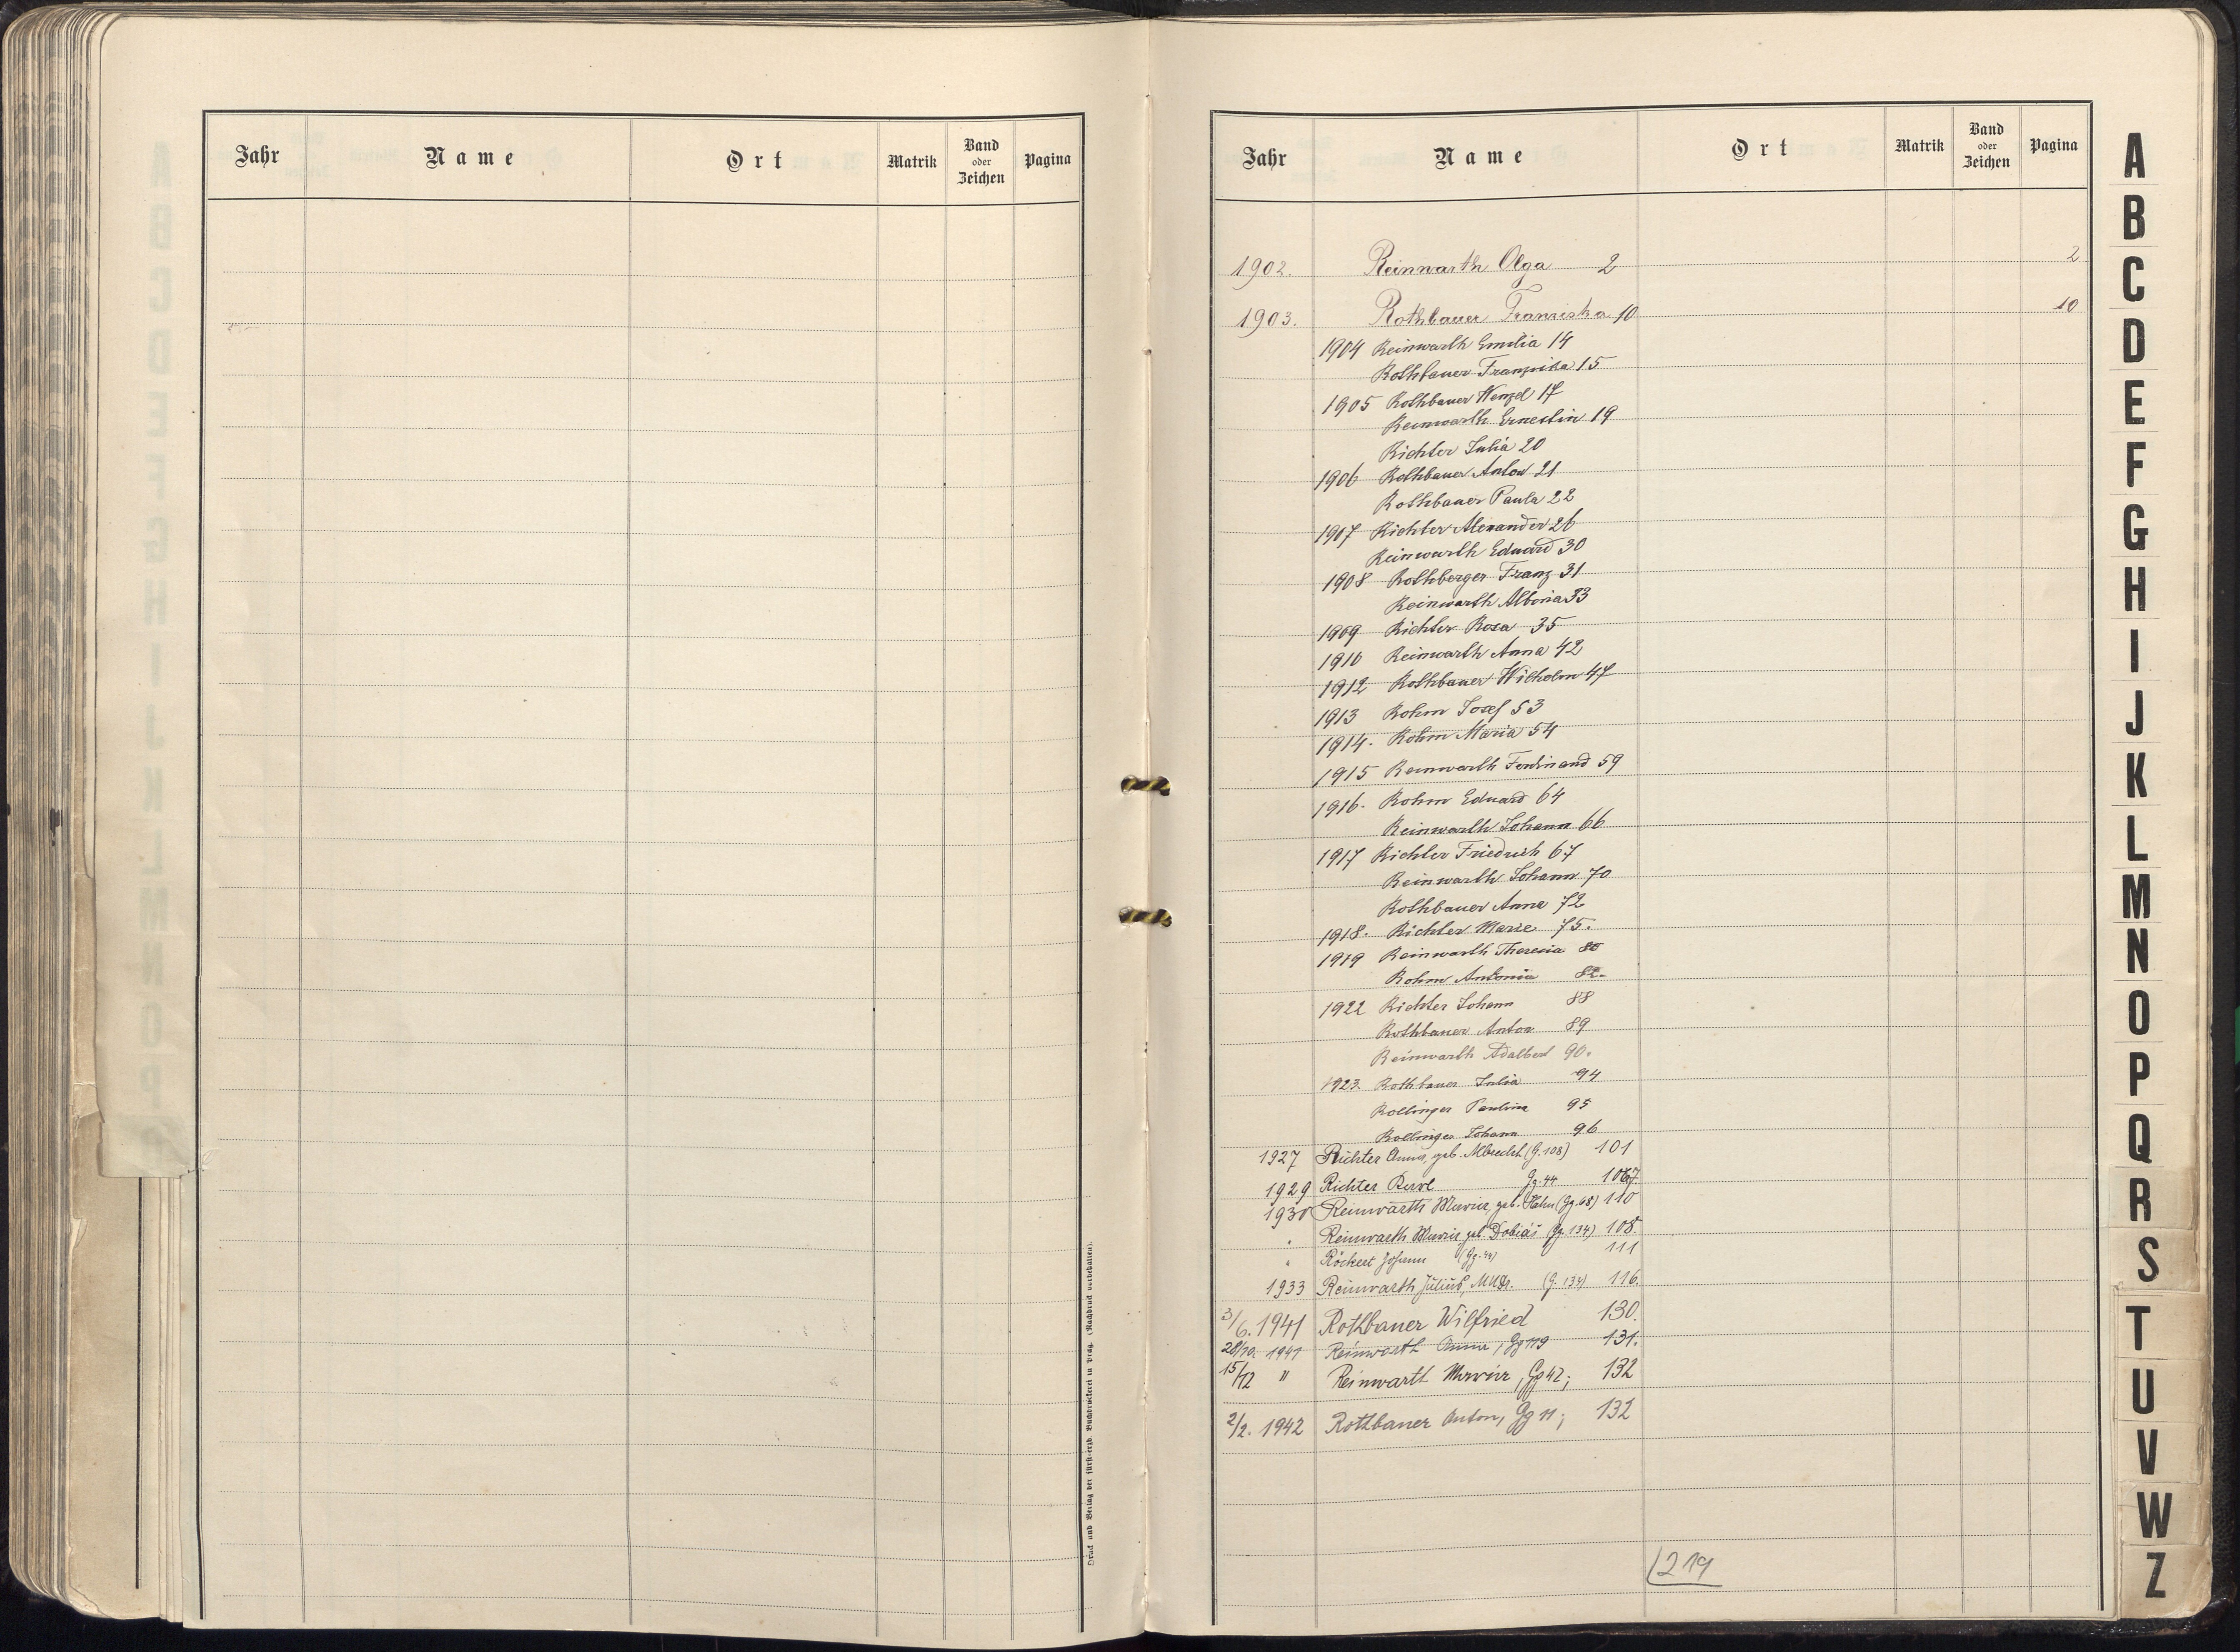 Jahr Name Ort Matrik Band oder Zeichen Pagina
Druck und Verlag der fürst-erzb. Buchdruckerei in Prag. (Nachdruck vorbehalten).
Jahr Name Ort Matrik Band oder Zeichen Pagina
1902. Reinwarth Olga 2 2
1903. Rothbauer Franziska 10 10
1904 Reinwarth Emilia 14
Rothbauer Franziska 15
1905 Rothbauer Wenzel 17
Reinwarth Ernestin 19
Richter Julia 20
1906 Rothbauer Anton 21
Rothbauer Paula 22
1907 Richter Alexander 26
Reinwarth Eduard 30
1908 Rothberger Franz 31
Reinwarth Albina 33
1909 Richter Rosa 35
1910 Reinwarth Anna 42
1912 Rothbauer Wilhelm 47
1913 Rohm Josef 53
1914. Rohm Maria 54
1915 Reinwarth Ferdinand 59
1916. Rohm Eduard 64
Reinwarth Johann 66
1917 Richter Friedrich 67
Reinwarth Johann 70
Rothbauer Anna 72
1918. Richter Marie 75.
1919 Reinwarth Theresia 80
Rohm Antonia 82.
1922 Richter Johann 88
Rothbauer Anton 89
Reinwarth Adalbert 90.
1923. Rothbauer Julia 94
Rollinger Paulina 95
Rollinger Johann 96
1927 Richter Anna, geb. Albrecht (G. 108) 101
1929 Richter Gg. 44
1930 Reinwarth Maria, geb. Hahn (Gg. 68) 110
" Reinwarth Maria geb. Dobiáš (Gg. 134) 108.
" Röckert Johann (Gg. 44) 111
1933 Reinwarth Julius, MUDr. (G. 134) 116.
3/6. 1941 Rothbauer Wilfried 130.
28/10. 1941 Reinwarth Anna, Gg 119 131.
15/12 " Reinwarth Maria, Gg 42; 132
2/2. 1942 Rothbauer Anton, Gg 11; 132
219
A
B
C
D
E
F
G
H
I
J
K
L
M
N
O
P
Q
R
S
T
U
V
W
Z